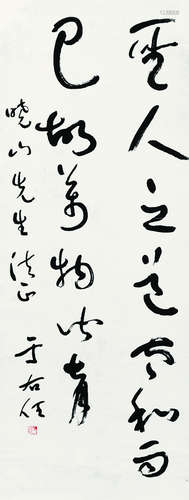 聖人之道和而
已故萬物皆育
曉山先生法正
于右任